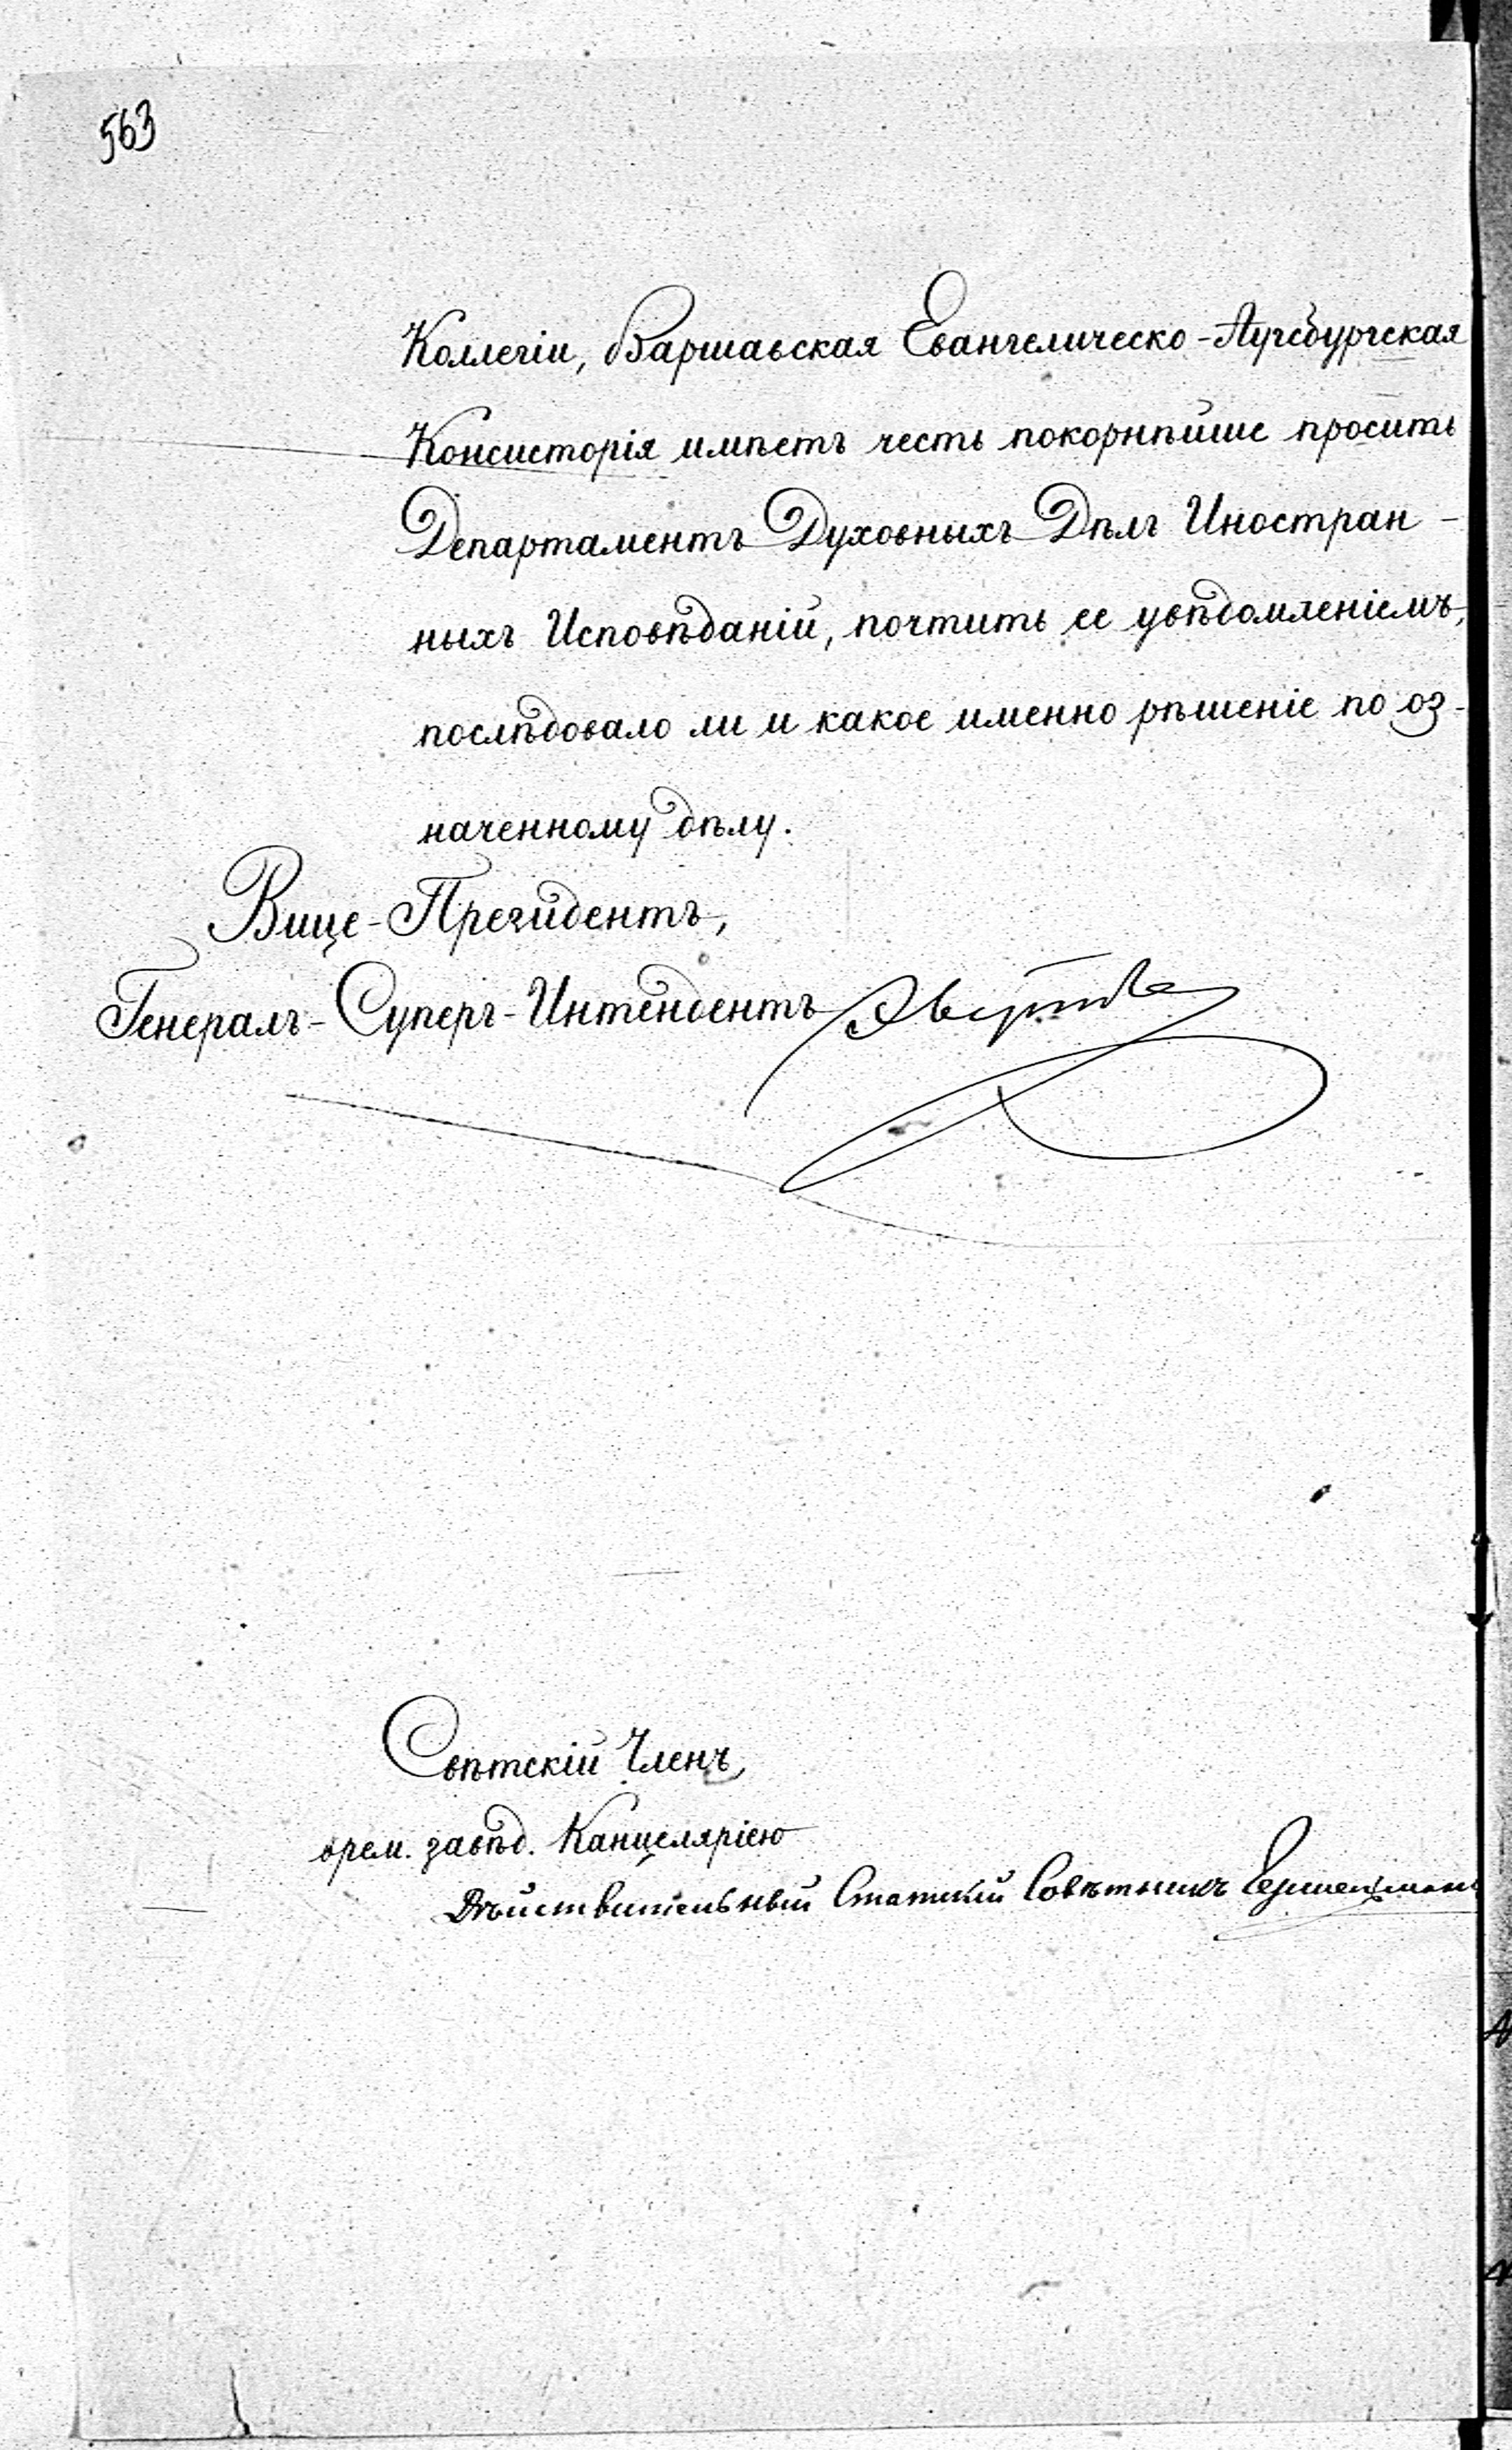 563
Коллегіи, Варшавская Евангелическо-Аугсбургская
Консисторія имѣетъ честь покорнѣйше просить
Департаментъ Духовныхъ Дѣлъ Иностран-
ныхъ Исповѣданій, почтить ее увѣдомленіемъ,
послѣдовало ли и какое именно рѣшеніе по оз-
наченному дѣлу.
Вице-Президентъ,
Генералъ-Суперъ-Интендентъ
Свѣтскій Членъ,
врем. завѣд. Канцеляріею
Дѣйствительный Статскій Совѣтникъ